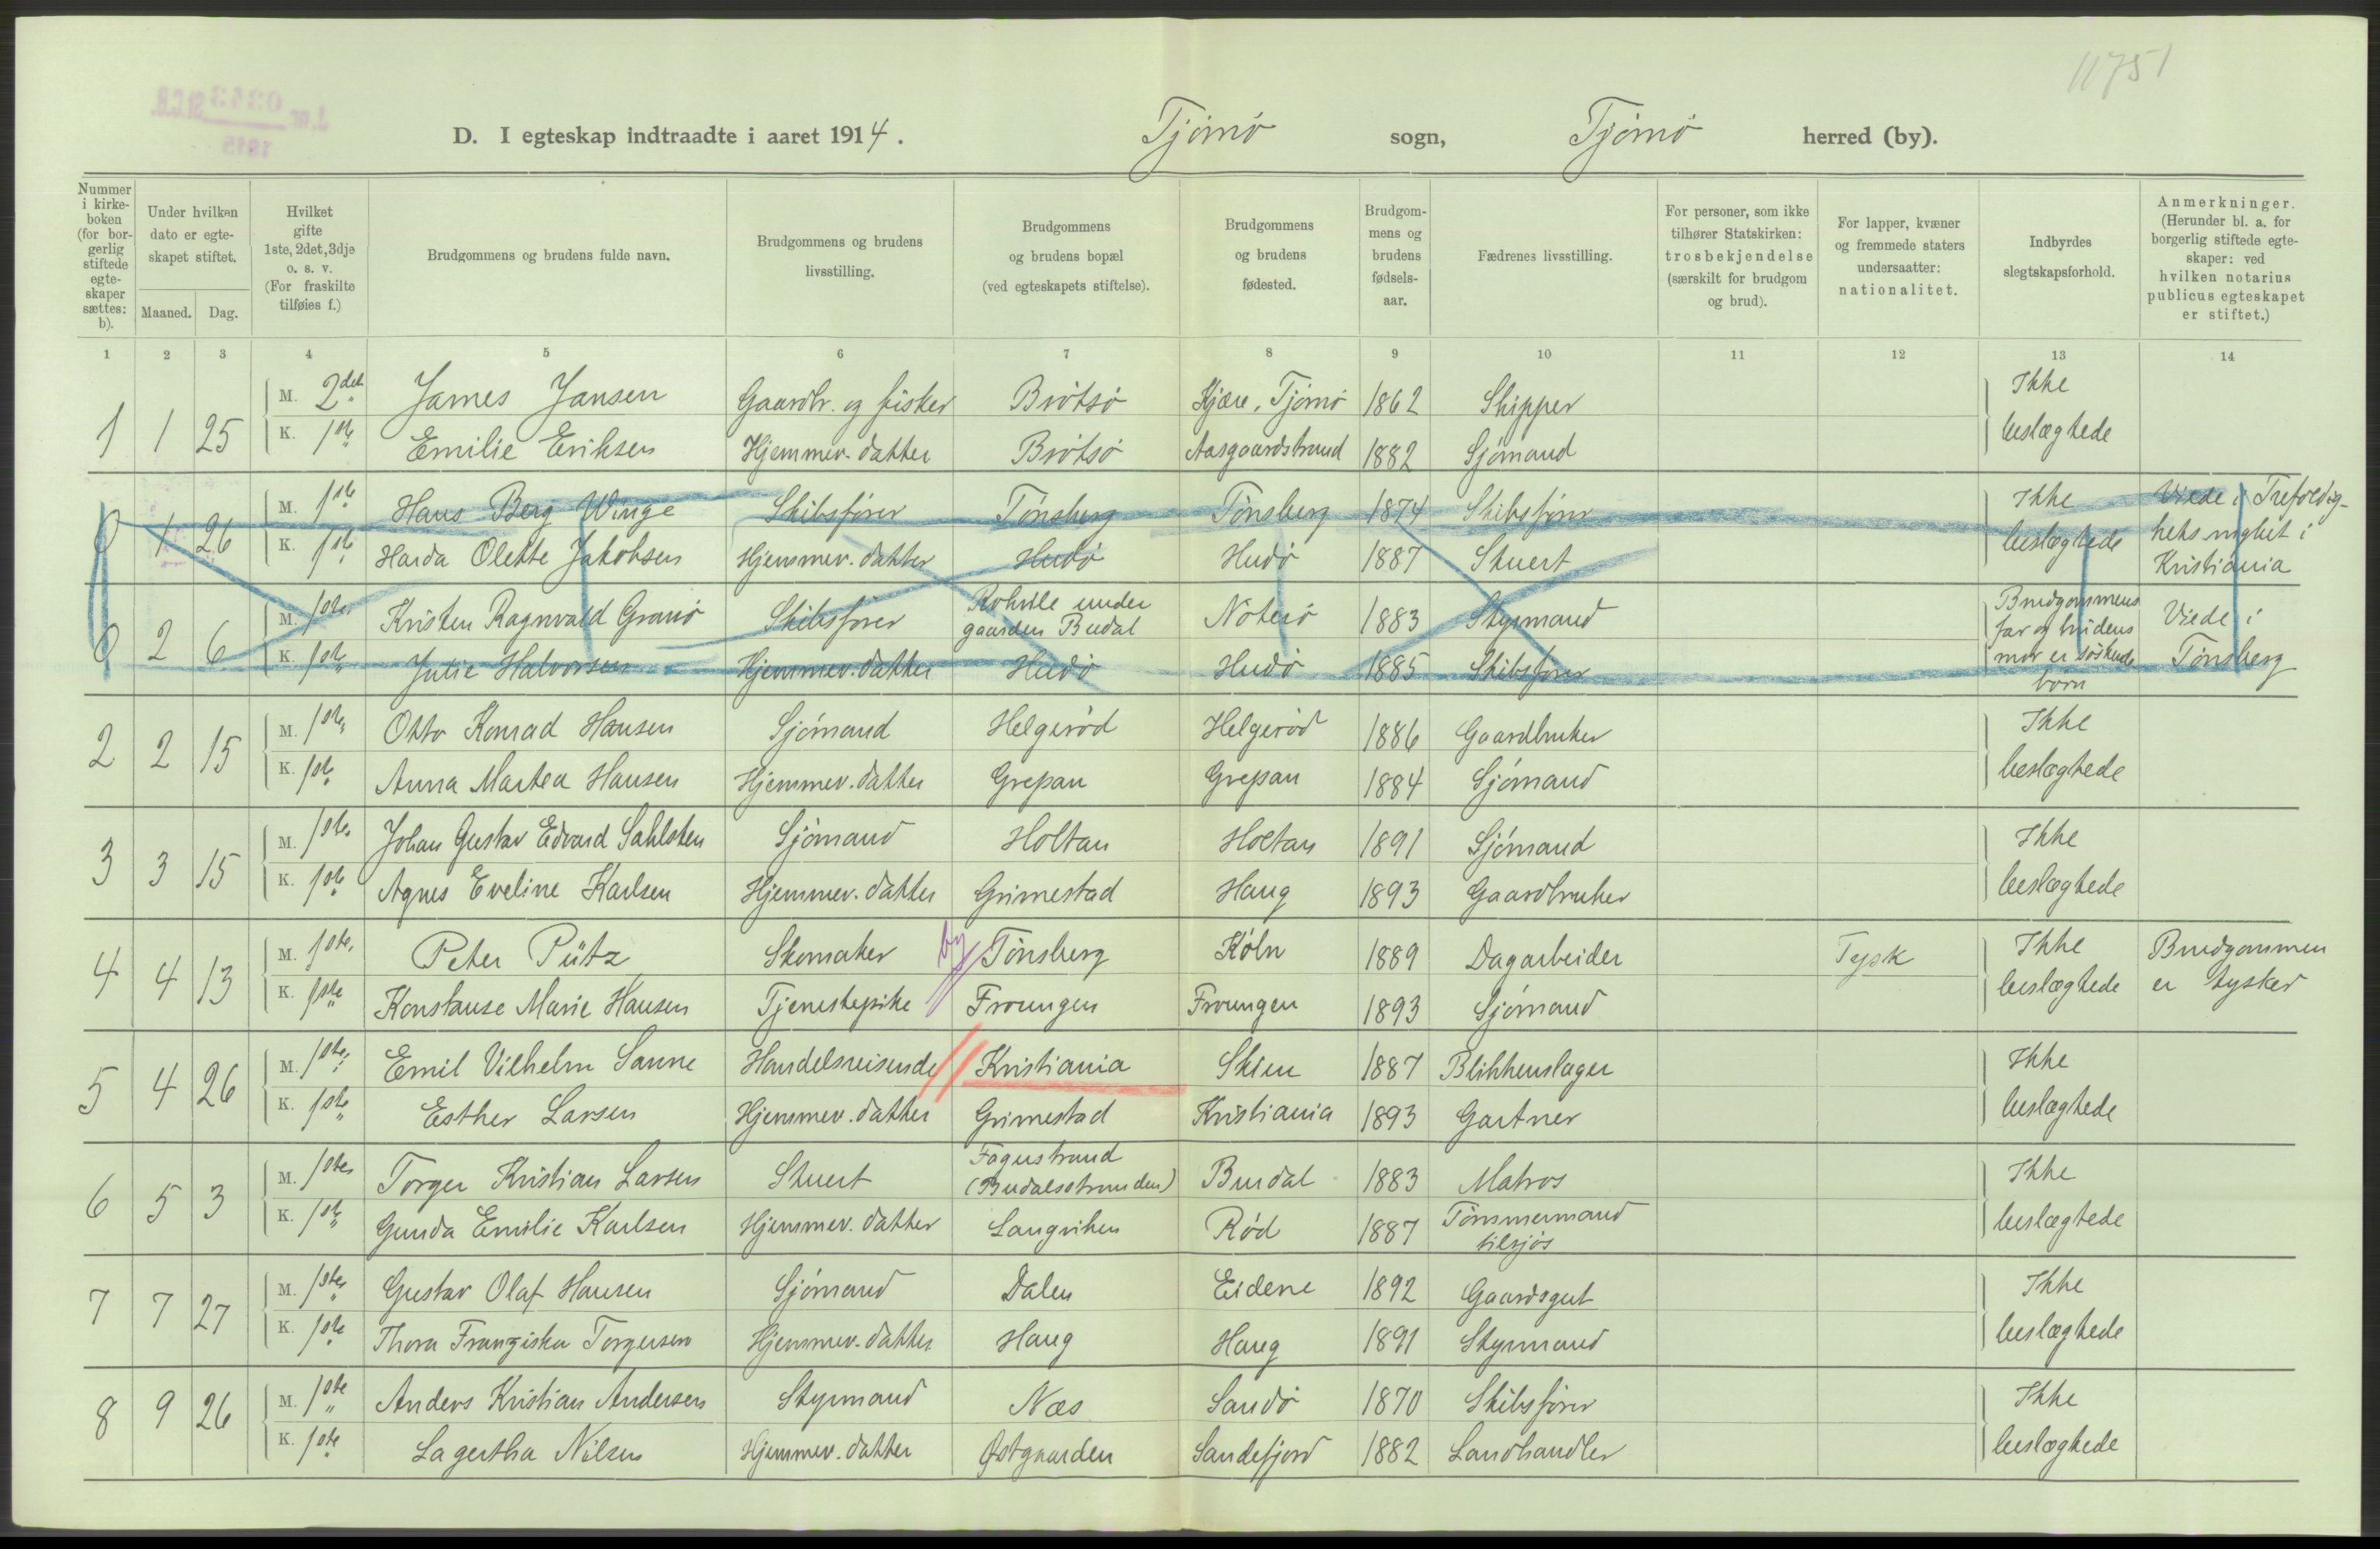 11751
J. nr. 0343 St.C.B.
1915
D. I egteskap indtraadte i aaret 1914. Tjömö sogn, Tjömö herred (by).
Nummer i kirkeboken (for borgerlig stiftede egteskaper sættes: b).
Under hvilken dato er egteskapet stiftet.
Maaned. Dag.
Hvilket gifte 1ste, 2det, 3dje o. s. v. (For fraskilte tilføies f.)
Brudgommens og brudens fulde navn.
Brudgommens og brudens livsstilling.
Brudgommens og brudens bopæl (ved egteskapets stiftelse).
Brudgommens og brudens fødested.
Brudgommens og brudens fødselsaar.
Fædrenes livsstilling.
For personer, som ikke tilhører Statskirken: trosbekjendelse (særskilt for brudgom og brud).
For lapper, kvæner og fremmede staters undersaatter: nationalitet.
Indbyrdes slegtskapsforhold.
Anmerkninger. (Herunder bl. a. for borgerlig stiftede egteskaper: ved hvilken notarius publicus egteskapet er stiftet.)
1 2 3 4 5 6 7 8 9 10 11 12 13 14
1 1 25 M. 2det James Jansen Gaardbr. og fisker Brötsö Kjære, Tjömö 1862 Skipper Ikke
K. 1ste Emilie Eriksen Hjemmev. datter Brötsö Aasgaardstrand 1882 Sjömand beslægtede
0 1 26 M. 1ste Hans Berg Winge Skibsfører Tönsberg Tönsberg 1874 Skibsfører Ikke Viede i Trefoldig-
K. 1ste Harda Olette Jakobsen Hjemmev. datter Hudö Hudö 1887 Stuert beslægtede hets menighet i
Kristiania
0 2 6 M. 1ste Kristen Ragnvald Granö Skibsfører under gaarden Budal Nöterö 1883 Styrmand Brudgommens far og brudens Viede i
K. 1ste Julie Halvorsen Hjemmev. datter Hudö Hudö 1885 Skibsfører mor er söskende Tönsberg
börn
2 2 15 M. 1ste Otto Konrad Hansen Sjömand Helgeröd Helgeröd 1886 Gaardbruker Ikke
K. 1ste Anna Martea Hansen Hjemmev. datter Grepan Grepan 1884 Sjömand beslægtede
3 3 15 M. 1ste Johan Gustav Edvard Sahlsten Sjömand Holtan Holtan 1891 Sjömand Ikke
K. 1ste Agnes Eveline Karlsen Hjemmev. datter Grimestad Haug 1893 Gaardbruker beslægtede
4 4 13 M. 1ste Peter Pütz Skomaker by Tönsberg Köln 1889 Dagarbeider Tysk Ikke Brudgommen
K. 1ste Konstanse Marie Hansen Tjenestepike Froungen Froungen 1893 Sjömand beslægtede er tysker
5 4 26 M. 1ste Emil Vilhelm Sanne Handelsreisende Kristiania Skien 1887 Blikkenslager Ikke
K. 1ste Esther Larsen Hjemmev. datter Grimestad Kristiania 1893 Gartner beslægtede
6 5 3 M. 1ste Torger Kristian Larsen Stuert Fagerstrand (Budalsstranden) Burdal 1883 Matros Ikke
K. 1ste Gunda Emilie Karlsen Hjemmev. datter Langviken Röd 1887 Tömmermand tilsjös beslægtede
7 7 27 M. 1ste Gustav Olaf Hansen Sjömand Dalen Eidene 1892 Gaardsgut Ikke
K. 1ste Thora Franziska Torgersen Hjemmev. datter Haug Haug 1891 Styrmand beslægtede
8 9 26 M. 1ste Anders Kristian Andersen Styrmand Næs Sandö 1870 Skibsfører Ikke
K. 1ste Lagertha Nilsen Hjemmev. datter Østgaarden Sandefjord 1882 Landhandler beslægtede